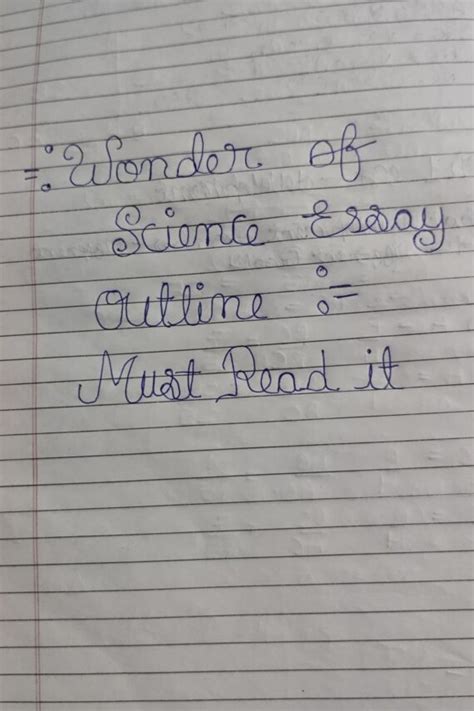 =: Wonder of
Science Essay
Outline :=
Must Read it